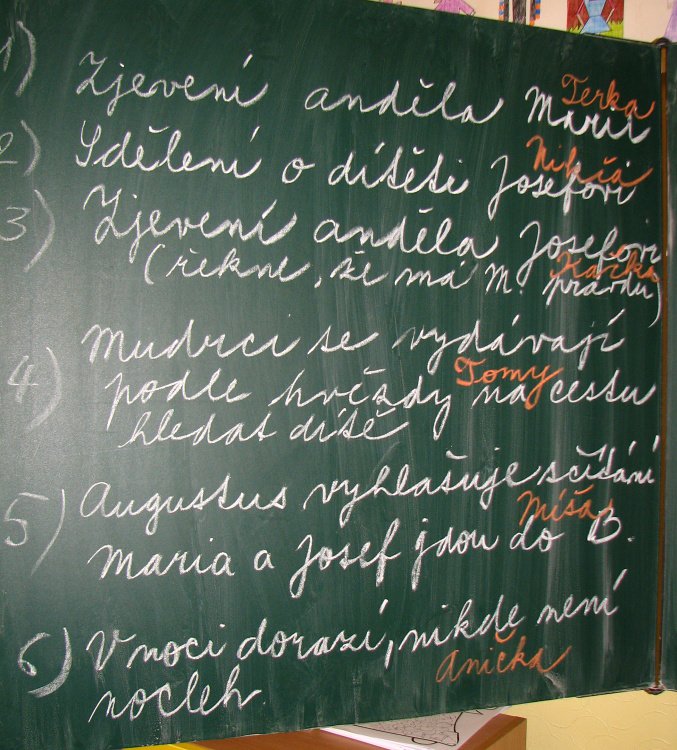 1) Zjevení anděla Marii Terka
2) Sdělení o dítěti Josefovi Nikča
3) Zjevení anděla Josefovi
(řekne, že má M. pravdu) Kačka
4) Mudrci se vydávají
podle hvězdy Tomy na cestu
hledat dítě
5) Augustus vyhlašuje sčítání
Maria a Josef jdou do B. Míša
6) V noci dorazí, nikde není
nocleh. Anička